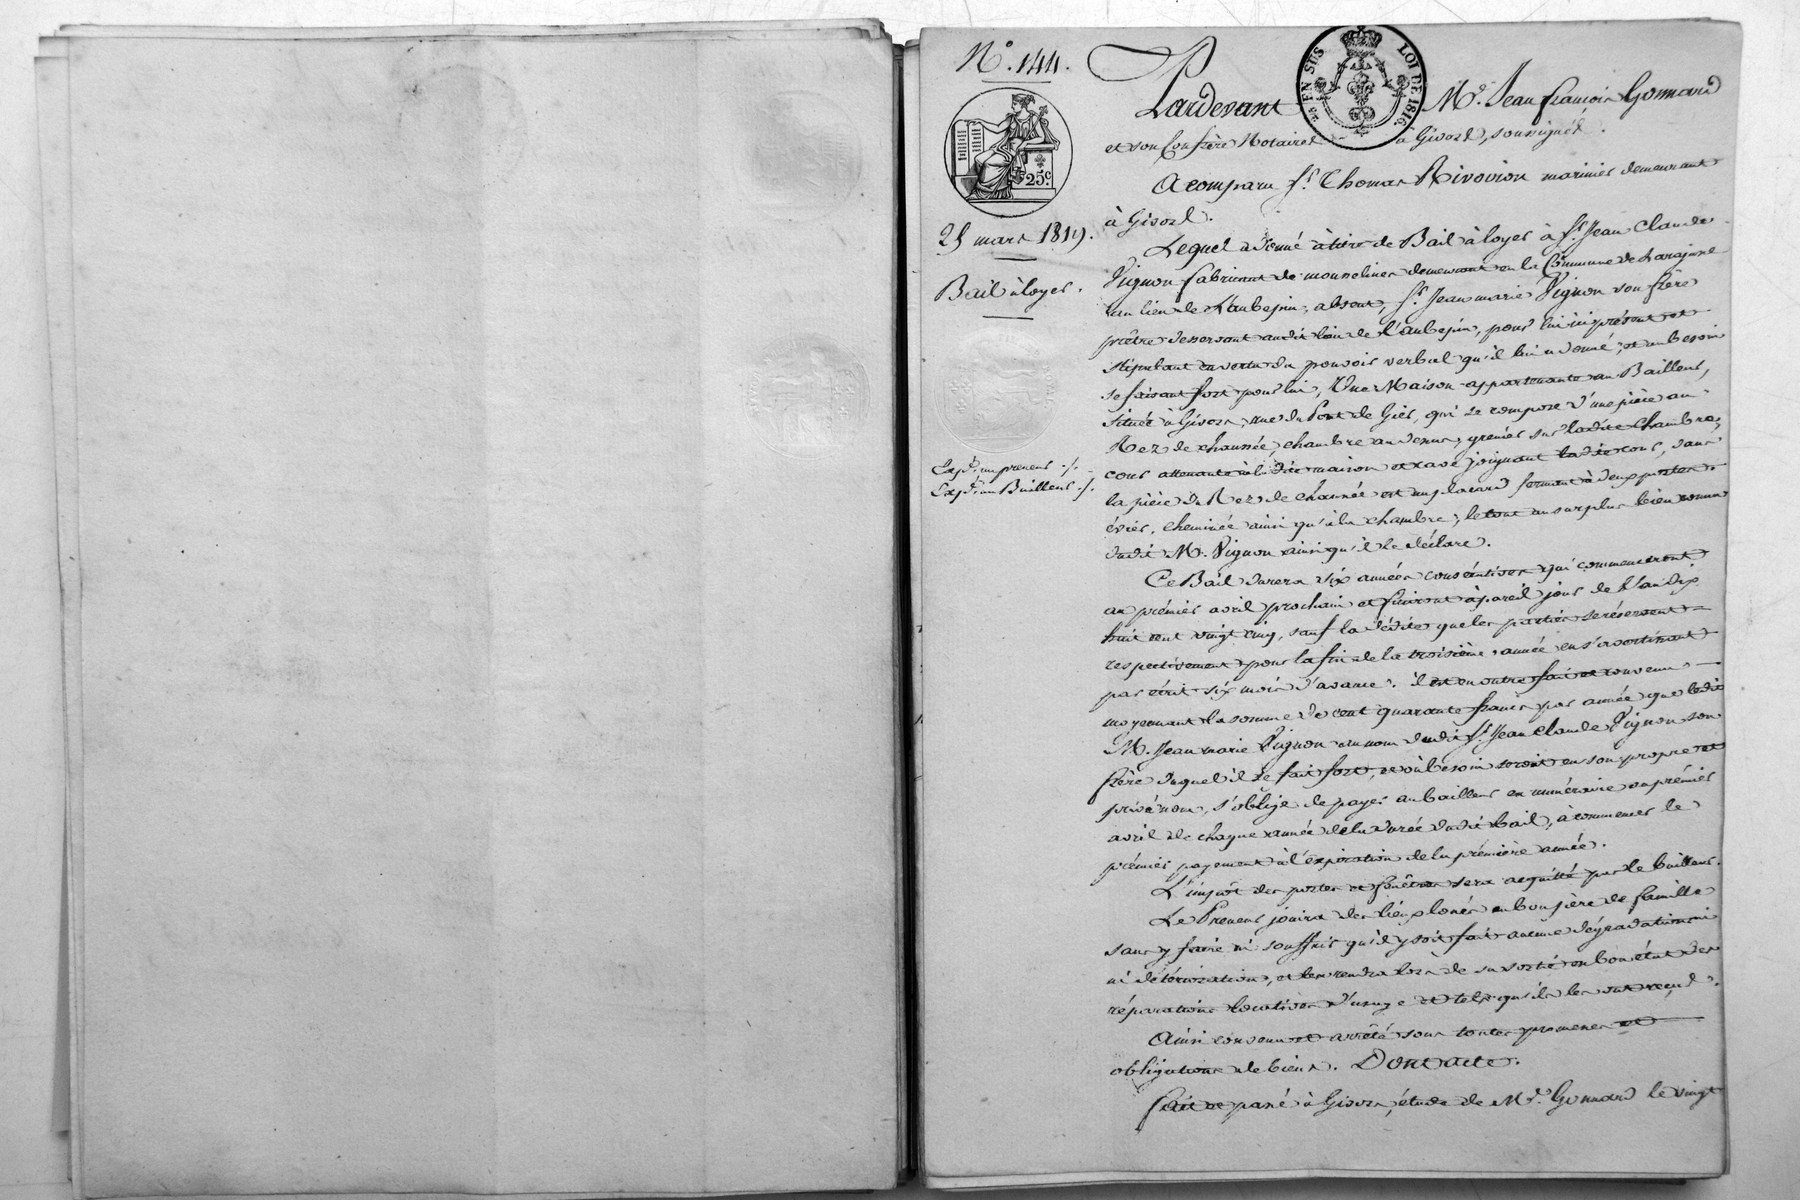 N.º 144.
25 EN SUS
LOI DE 1816
25.c
25 mars 1819.
Bail à loyer.
Exp.on au preneur ./.
Exp.on au Bailleur ./.
Pardevant M.e Jean françois Gonnard
et son Confrère Notaires à Givors, soussignés.
A comparu s.r Thomas Rivoiron marinier demeurant
à Givors.
Lequel a donné à titre de Bail à loyer à s.r Jean Claude
Vignon fabricant de mousselines demeurant en la Commune de Larajasse
au lieu de L'aubépin, absent, s.r Jean marie Vignon son frère
prêtre desservant audit lieu de L'aubépin, pour lui ici présent et
stipulant en vertu du pouvoir verbal qu'il lui a donné, et au besoin
se faisant fort pour lui, Une Maison appartenante au Bailleur,
située à Givors, rue du Pont de Gier, qui se compose d'une pièce au
Rez de chaussée, chambre au dessus, grenier sur ladite chambre,
cour attenante à la dite maison et cave joignant ladite cour, dans
la pièce du Rez de chaussée est un placard fermant à deux portes
évier, cheminée ainsi qu'à la chambre, le tout au surplus bien connu
dudit M. Vignon ainsi qu'il le déclare.
Ce Bail durera six années consécutives qui commenceront
au prémier avril prochain et finiront à pareil jour de l'an dix
huit cent vingt cinq, sauf la dédite que les parties se réservent
respectivement pour la fin de la troisième année en s'avertissant
par écrit six mois d'avance. il est en outre fait et convenu
moyennant la somme de cent quarante francs par année que ledit
M. Jean marie Vignon au nom dudit s.r Jean Claude Vignon son
frère duquel il se fait fort, et où besoin seroit en son propre et
privé nom, s'oblige de payer au bailleur en numéraire au prémier
avril de chaque année de la durée dudit bail, à commencer le
prémier payement à l'expiration de la prémière année.
L'impôt des portes et fenêtres sera acquitté par le bailleur.
Le Preneur jouira des lieux loués en bon père de famille
sans y faire ni souffrir qu'il y soit fait aucune dégradation ni
ni détérioration, et les rendra lors de sa sortie en bon état des
réparations locatives d'usage et tels qu'il les ont reçus.
Ainsi convenu et arrêté sous toutes promesses et
obligations de biens. Dont acte.
fait et passé à Givors, étude de M.e Gonnard le vingt